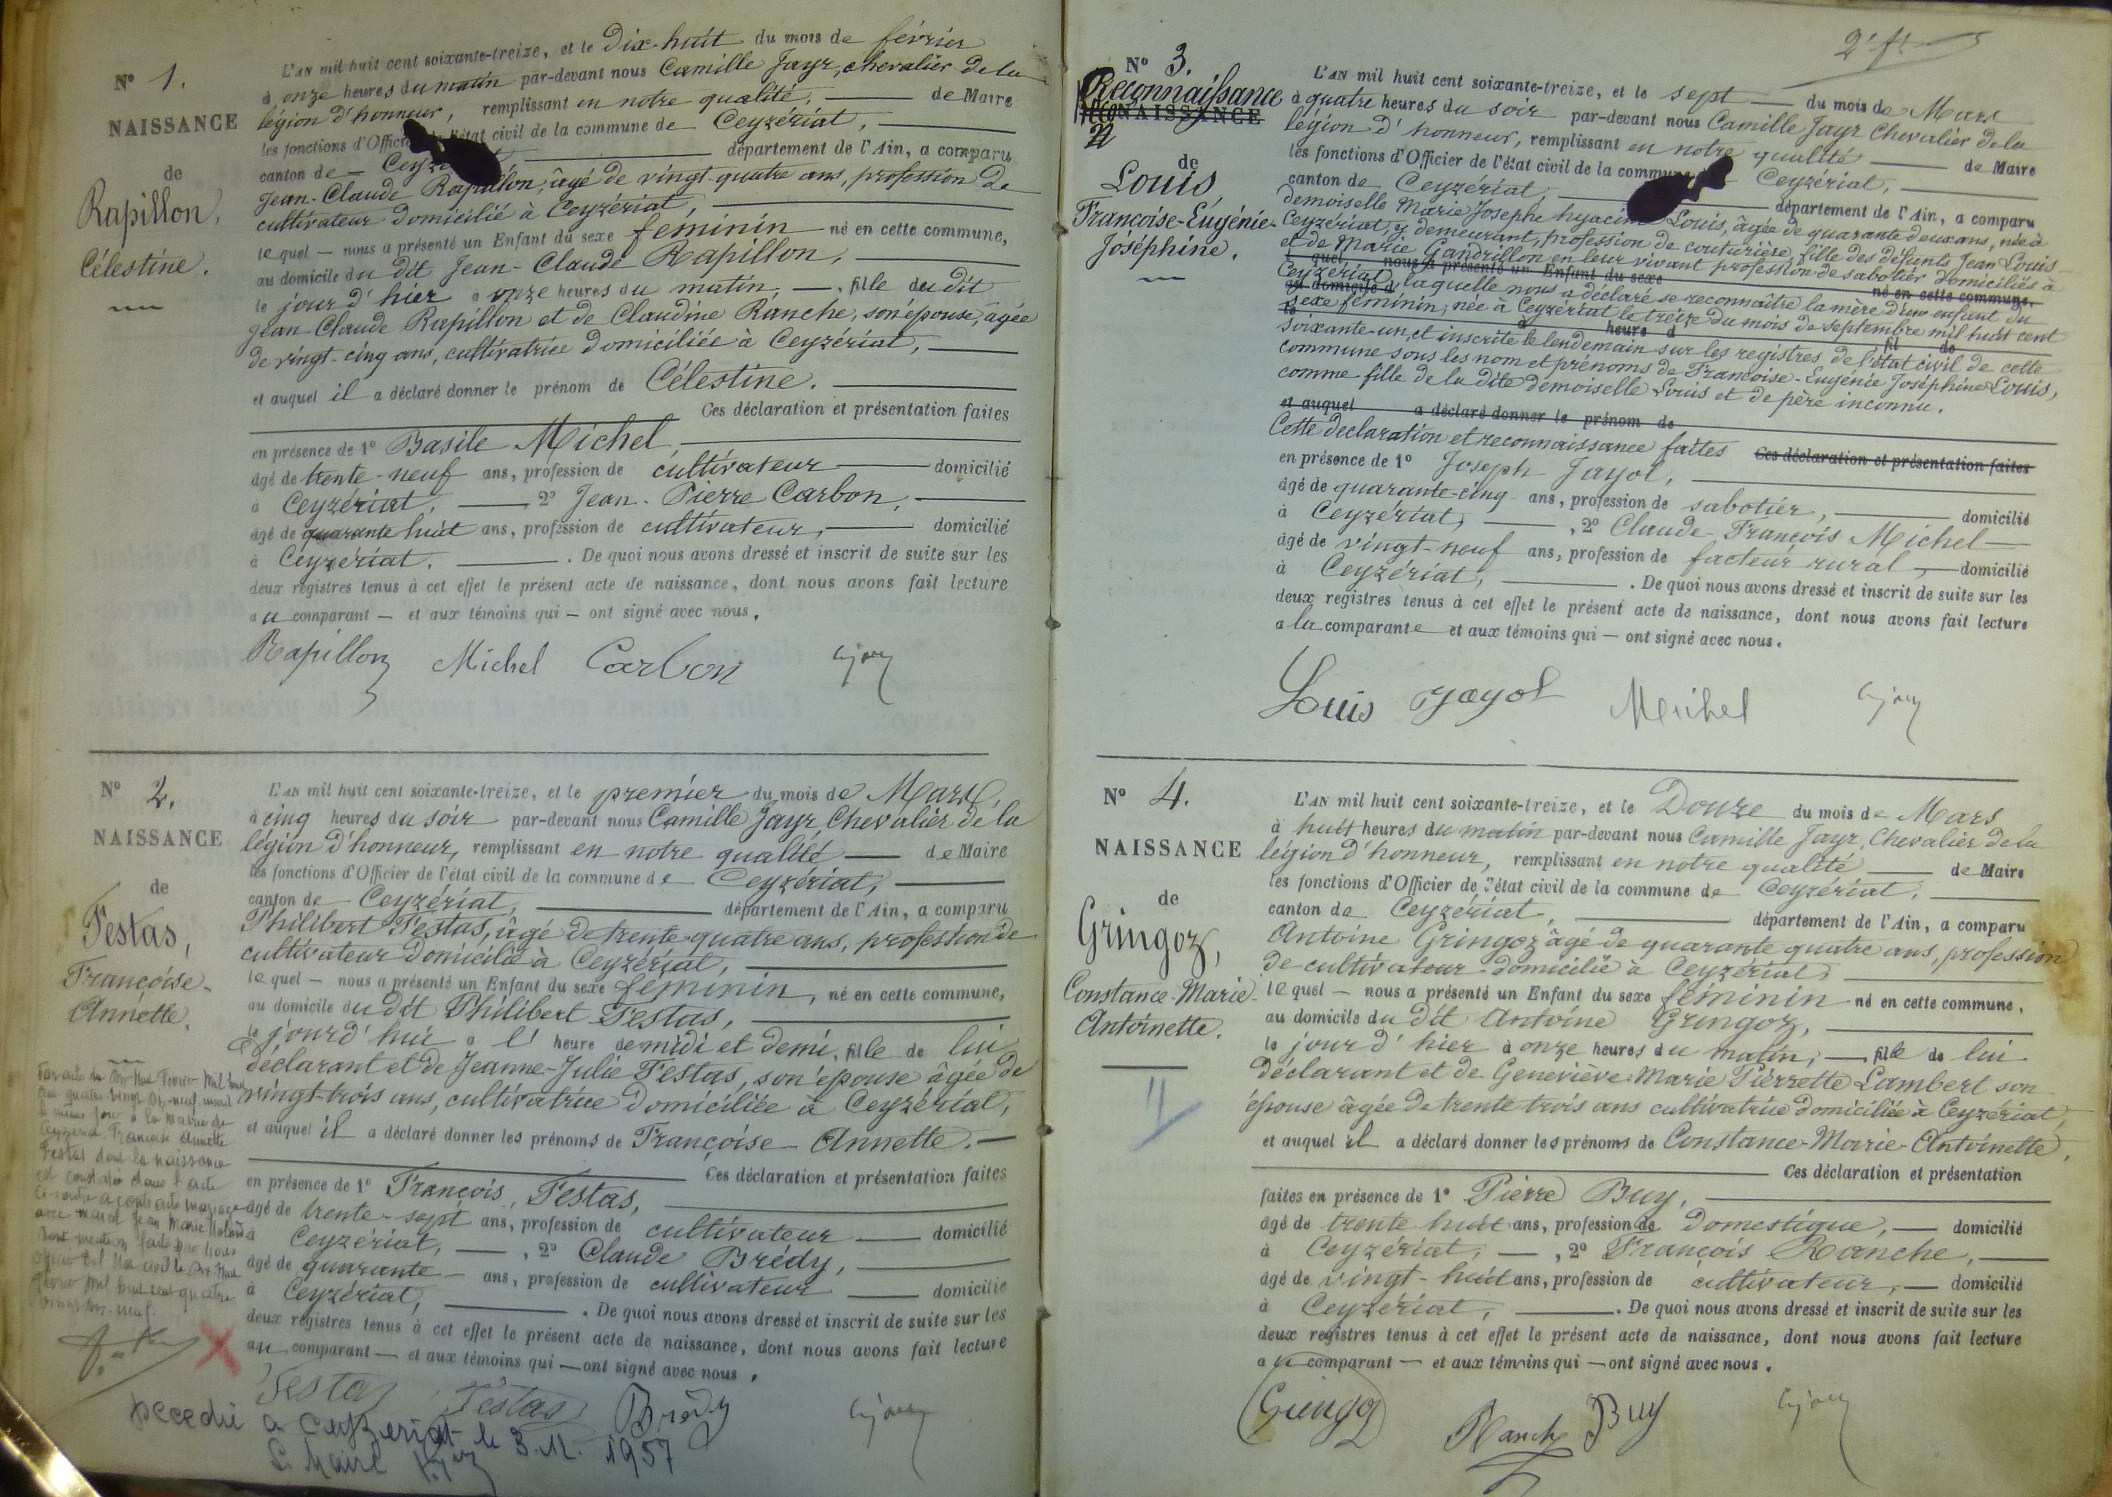 N° 1.
NAISSANCE
de
Rapillon,
Célestine.
L'AN mil huit cent soixante-treize, et le Dix-huit du mois de février
à onze heures du matin par-devant nous Camille Jayr, chevalier de la
légion d'honneur, remplissant en notre qualité, de Maire
les fonctions d'Officier de l'état civil de la commune de Ceyzériat,
canton de Ceyzériat, département de l'Ain, a comparu
Jean-Claude Rapillon, âgé de vingt-quatre ans, profession de
cultivateur domicilié à Ceyzériat,
lequel nous a présenté un Enfant du sexe féminin né en cette commune,
au domicile du dit Jean-Claude Rapillon,
le jour d'hier à onze heures du matin, fille du dit
Jean-Claude Rapillon et de Claudine Ranche, son épouse, âgée
de vingt-cinq ans, cultivatrice domiciliée à Ceyzériat,
et auquel il a déclaré donner le prénom de Célestine.
Ces déclaration et présentation faites
en présence de 1° Basile Michel
âgé de trente-neuf ans, profession de cultivateur domicilié
à Ceyzériat, 2° Jean-Pierre Carbon,
âgé de quarante huit ans, profession de cultivateur, domicilié
à Ceyzériat. De quoi nous avons dressé et inscrit de suite sur les
deux registres tenus à cet effet le présent acte de naissance, dont nous avons fait lecture
au comparant et aux témoins qui ont signé avec nous.
Rapillon Michel Carbon
N° 2.
NAISSANCE
de
Festas,
Françoise-
Annette.
L'AN mil huit cent soixante-treize, et le premier du mois de Mars,
à cinq heures du soir par-devant nous Camille Jayr, Chevalier de la
légion d'honneur, remplissant en notre qualité de Maire
les fonctions d'Officier de l'état civil de la commune de Ceyzériat,
canton de Ceyzériat, département de l'Ain, a comparu
Philibert Festas, âgé de trente-quatre ans, profession de
cultivateur domicilié à Ceyzériat,
lequel nous a présenté un Enfant du sexe féminin, né en cette commune,
au domicile du dit Philibert Festas,
le jour d'hui à l'heure de midi et demi, fille de lui
déclarant et de Jeanne-Julie Festas, son épouse âgée de
vingt-trois ans, cultivatrice domiciliée à Ceyzériat,
et auquel il a déclaré donner les prénoms de Françoise-Annette.
Ces déclaration et présentation faites
en présence de 1° François Festas,
âgé de trente-sept ans, profession de cultivateur domicilié
à Ceyzériat, 2° Claude Brédy,
âgé de quarante ans, profession de cultivateur domicilié
à Ceyzériat, De quoi nous avons dressé et inscrit de suite sur les
deux registres tenus à cet effet le présent acte de naissance, dont nous avons fait lecture
au comparant et aux témoins qui ont signé avec nous.
Festas Festas Bredy
Ceyzériat Françoise Annette
Festas dont la naissance
est constatée dans l'acte
ci-contre a contracté mariage
avec Marcel Jean Marie
Decedée a Ceyzeriat le 3.11.1957
Le Maire
2e ft
N° 3.
Reconnaissance
NAISSANCE
de
Louis,
Françoise-Eugénie-
Joséphine.
L'AN mil huit cent soixante-treize, et le sept du mois de Mars
à quatre heures du soir par-devant nous Camille Jayr Chevalier de la
légion d'honneur, remplissant en notre qualité de Maire
les fonctions d'Officier de l'état civil de la commune de Ceyzériat,
canton de Ceyzériat, département de l'Ain, a comparu
demoiselle Marie Josephe hyacinthe Louis, âgée de quarante deux ans, née à
Ceyzériat, y demeurant, profession de couturière, fille des défunts Jean Louis
et de Marie Gandrillon en leur vivant profession de sabotier domiciliés à
lequel nous a présenté un Enfant du sexe né en cette commune,
Ceyzériat, laquelle nous a déclaré se reconnaître la mère d'un enfant du
au domicile d
sexe féminin, née à Ceyzériat le treize du mois de septembre mil huit cent
le à heure d fil de
soixante-un, et inscrite le lendemain sur les registres de l'état civil de cette
commune sous les nom et prénoms de Françoise-Eugénie Joséphine Louis,
comme fille de la dite demoiselle Louis et de père inconnu.
et auquel a déclaré donner le prénom de
Cette declaration et reconnaissance faites Ces déclaration et présentation faites
en présence de 1° Joseph Jayol,
âgé de quarante-cinq ans, profession de sabotier, domicilié
à Ceyzériat, 2° Claude-François Michel
âgé de vingt-neuf ans, profession de facteur rural, domicilié
à Ceyzériat, De quoi nous avons dressé et inscrit de suite sur les
deux registres tenus à cet effet le présent acte de naissance, dont nous avons fait lecture
a la comparante et aux témoins qui ont signé avec nous.
Louis Jayol Michel
N° 4.
NAISSANCE
de
Gringoz,
Constance-Marie-
Antoinette.
L'AN mil huit cent soixante-treize, et le Douze du mois de Mars
à huit heures du matin par-devant nous Camille Jayr, Chevalier de la
légion d'honneur, remplissant en notre qualité de Maire
les fonctions d'Officier de l'état civil de la commune de Ceyzériat,
canton de Ceyzériat, département de l'Ain, a comparu
Antoine Gringoz âgé de quarante quatre ans, profession
de cultivateur domicilié à Ceyzériat,
lequel nous a présenté un Enfant du sexe féminin né en cette commune,
au domicile du dit Antoine Gringoz,
le jour d'hier à onze heures du matin, fille de lui
déclarant et de Geneviève-Marie Pierrette Lambert son
épouse âgée de trente trois ans cultivatrice domiciliée à Ceyzériat,
et auquel il a déclaré donner les prénoms de Constance-Marie-Antoinette,
Ces déclaration et présentation
faites en présence de 1° Pierre Buy,
âgé de trente huit ans, profession de Domestique, domicilié
à Ceyzériat, 2° François Ranche,
âgé de vingt-huit ans, profession de cultivateur, domicilié
à Ceyzériat, De quoi nous avons dressé et inscrit de suite sur les
deux registres tenus à cet effet le présent acte de naissance, dont nous avons fait lecture
au comparant et aux témoins qui ont signé avec nous.
Gringoz Ranche Buy